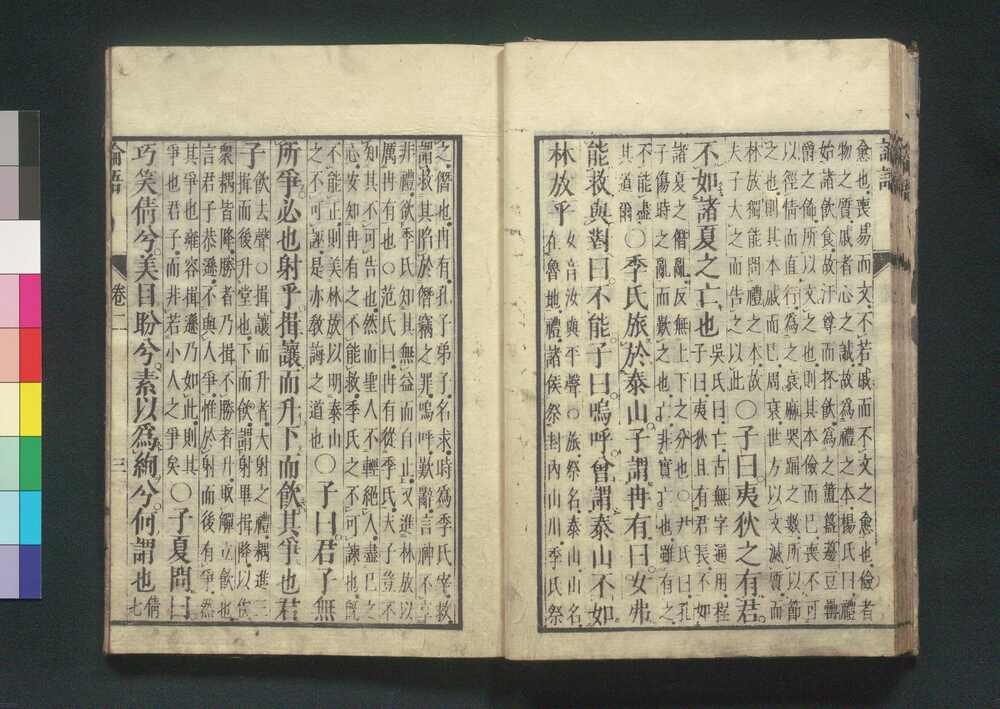 論語
愈也喪易而文不若戚而不文之愈也儉者
物之質戚者心之誠故為禮之本楊氏曰禮
始諸飲食故汙尊而抔飲為之簠簋籩豆罍
爵之飾所以文之也則其本儉而已喪不可
以徑情而直行為之衰麻哭踊之數所以節
之也則其本戚而已周衰世方以文滅質而
林放獨能問禮之本故
夫子大之而告之以此〇子曰夷狄之有君
不如諸夏之亡也吳氏曰亡古無字通用程
子曰夷狄且有君長不如
諸夏之僭亂反無上下之分也〇尹氏曰孔
子傷時之亂而歎之也亡非實亡也雖有之
不能盡
其道爾〇季氏旅於泰山子謂冉有曰女弗
能救與對曰不能子曰嗚呼曾謂泰山不如
林放乎女音汝與平聲〇旅祭名泰山山名
在魯地禮諸侯祭封內山川季氏祭
之僭也冉有孔子弟子名求時為季氏宰救
謂救其陷於僭竊之罪嗚呼歎辭言神不享
非禮欲季氏知其無益而自止又進林放以
厲冉有也〇范氏曰冉有從季氏夫子豈不
知其不可告也然而聖人不輕絕人盡己之
心安知冉有之不能救季氏之不可諫也既
不能正則美林放以明泰山
之不可誣是亦教誨之道也〇子曰君子無
所爭必也射乎揖讓而升下而飲其爭也君
子飲去聲〇揖讓而升者大射之禮耦進三
揖而後升堂也下而飲謂射畢揖降以俟
眾耦皆降勝者乃揖不勝者升取觶立飲也
言君子恭遜不與人爭惟於射而後有爭然
其爭也雍容揖遜乃如此則其
爭也君子而非若小人之爭矣〇子夏問曰
巧笑倩兮美目盼兮素以為絢兮何謂也倩
七
論語 卷二 三